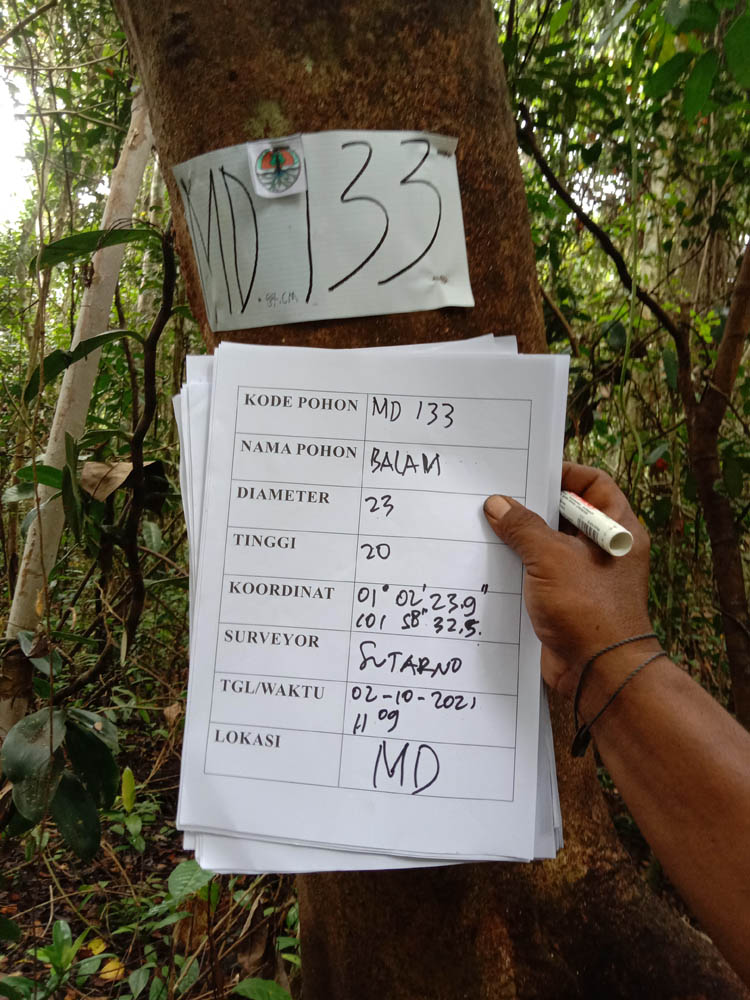 MD.133
KODE POHON MD 133
NAMA POHON BALAM
DIAMETER 23
TINGGI 20
KOORDINAT 01° 02' 23.9"
101 58" 32.5.
SURVEYOR SUTARNO
TGL/WAKTU 02-10-2021
11 09
LOKASI MD